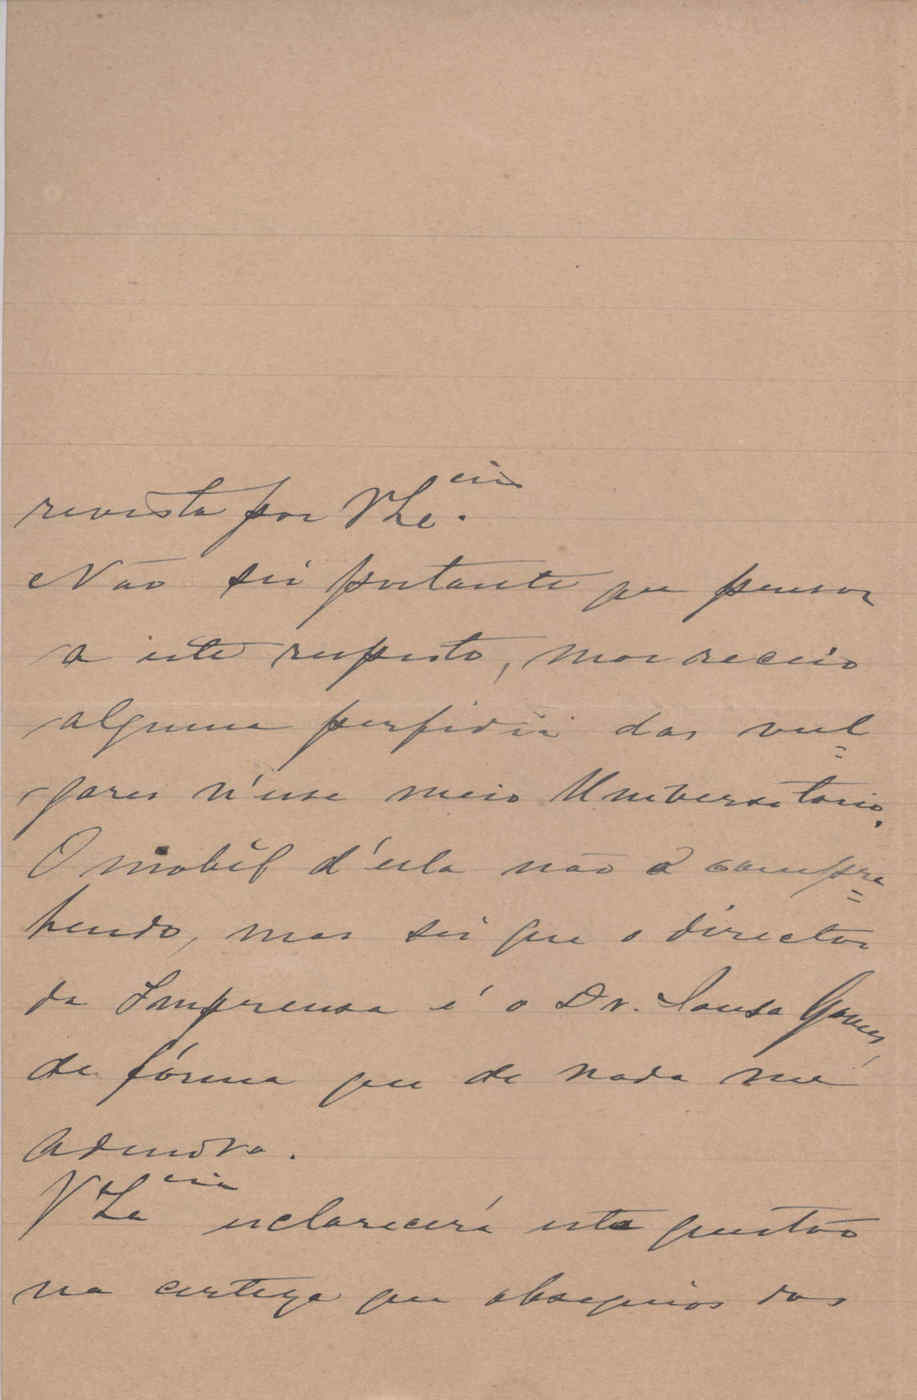 revista por V Ex.cia
Não sei portanto que pensar
a este respeito, mas receio
alguma perfidia das vul=
gares n'esse meio Universitario.
O mobil d'ela não o compre=
hendo, mas sei que o director
da Imprensa é o Dr. Sousa Gomes,
de fórma que de nada me
admiro.
V Ex.cia esclarecerá esta questão
na certeza que obsequios dos